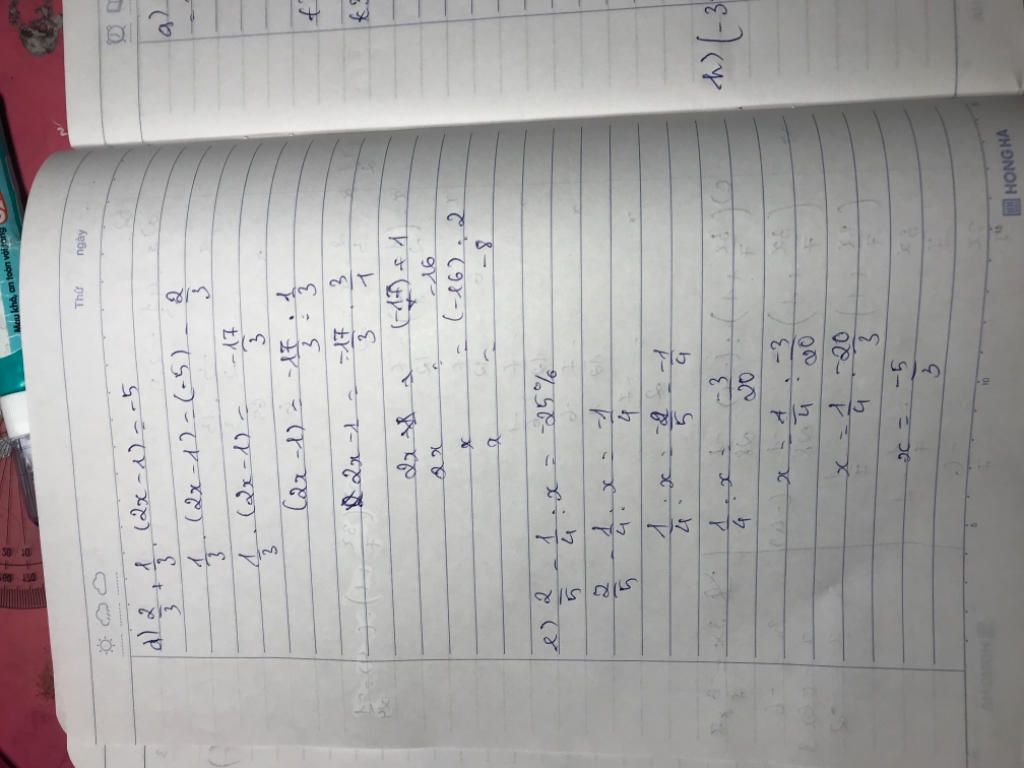 Thứ ngày
d) 2/3 + 1/3 . (2x - 1) = -5
1/3 . (2x - 1) = (-5) - 2/3
1/3 . (2x - 1) = -17/3
(2x - 1) = -17/3 : 1/3
2x - 1 = -17/3 . 3/1
2x = (-17) + 1
2x = -16
x = (-16) : 2
x = -8
e) 2/5 - 1/4 : x = -25%
2/5 - 1/4 : x = -1/4
1/4 : x = -2/5 - -1/4
1/4 : x = -3/20
x = 1/4 : -3/20
x = 1/4 . -20/3
x = -5/3
HONG HA
a)
h) (-3